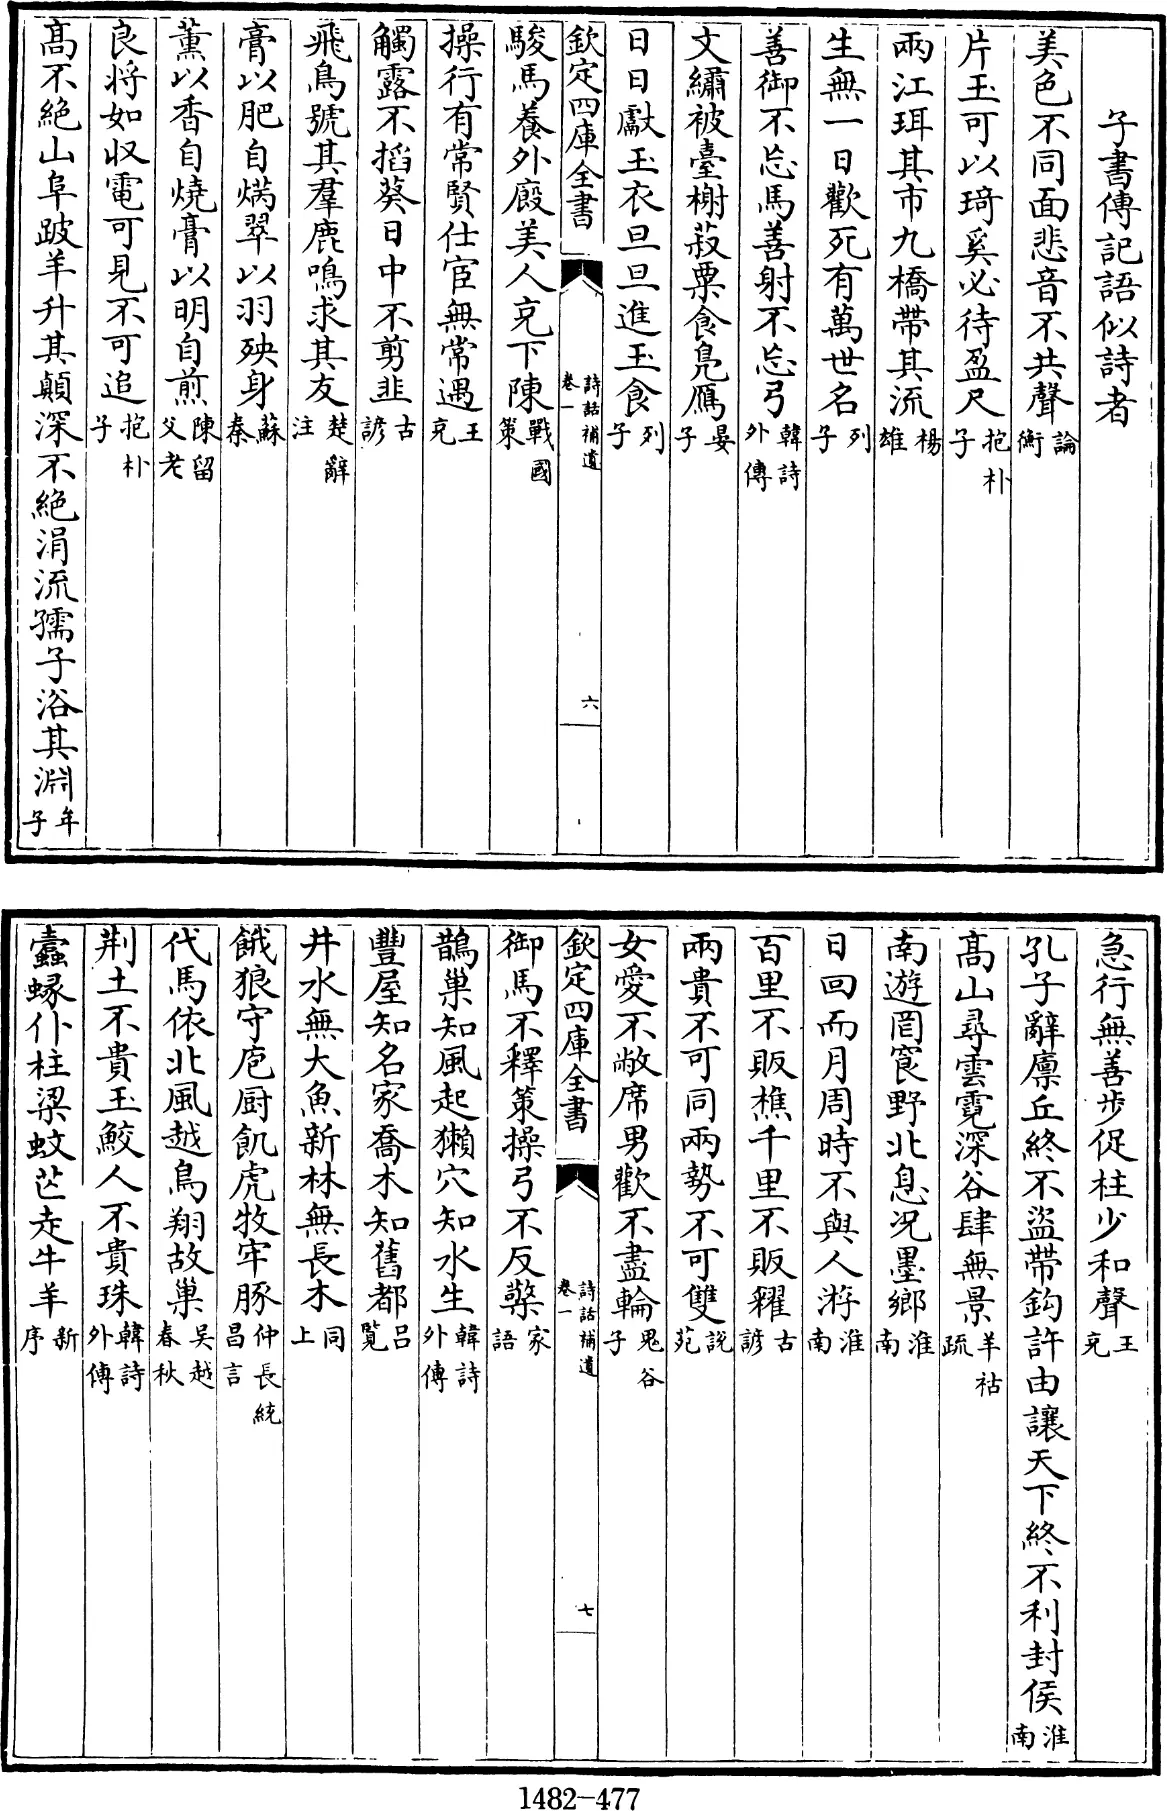 子書傳記語似詩者
美色不同面悲音不共聲論衡
片玉可以琦奚必待盈尺抱朴子
兩江珥其市九橋帶其流楊雄
生無一日歡死有萬世名列子
善御不忘馬善射不忘弓韓詩外傳
文繡被臺榭菽粟食鳬鴈晏子
日日獻玉衣旦旦進玉食列子
欽定四庫全書 詩話補遺 卷一 六
駿馬養外廐美人充下陳戰國策
操行有常賢仕宦無常遇王充
觸露不掐葵日中不剪韭古諺
飛鳥號其羣鹿鳴求其友楚辭注
膏以肥自焫翠以羽殃身蘇秦
薰以香自燒膏以明自煎陳留父老
良將如収電可見不可追抱朴子
髙不絶山阜跛羊升其顛深不絶涓流孺子浴其淵牟子
急行無善步促柱少和聲王充
孔子辭廪丘終不盜帶鈎許由讓天下終不利封侯淮南
髙山尋雲霓深谷肆無景羊祜疏
南遊罔㝗野北息況墨鄉淮南
日回而月周時不與人游淮南
百里不販樵千里不販糴古諺
兩貴不可同兩勢不可雙說苑
女愛不敝席男歡不盡輪鬼谷子
欽定四庫全書 詩話補遺 卷一 七
御馬不釋策操弓不反檠家語
鵲巢知風起獺穴知水生韓詩外傳
豐屋知名家喬木知舊都呂覽
井水無大魚新林無長木同上
餓狼守庖厨飢虎牧牢豚仲長統昌言
代馬依北風越鳥翔故巢吳越春秋
荆土不貴玉鮫人不貴珠韓詩外傳
蠹蝝仆柱梁蚊芒走牛羊新序
1482-477